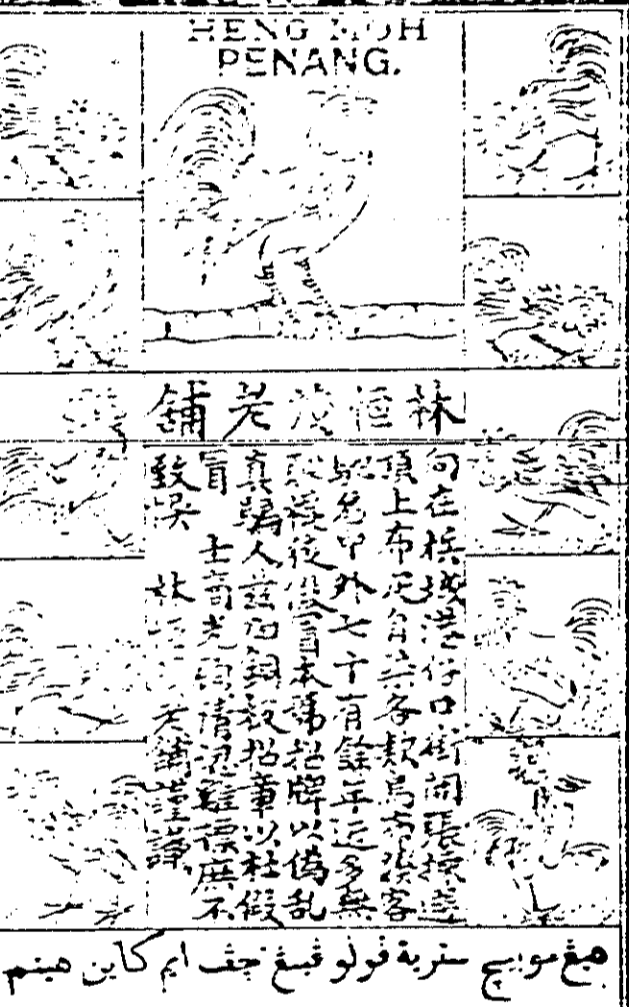 HENG MOH
PENANG.
林恒茂老舖
向在檳城港仔口街開張揀選
頂上布疋自染各款烏布發客
馳名中外七十有餘年近多無
恥徒假冒本號招牌以偽亂
真騙人茲加鋼板招牌以杜假
冒 士商光顧請認雞標庶不
致誤 林老號謹識
هيڠ موه بيچ سترية ڤولو ڤينڠ چڤ ايم كاين هيتم